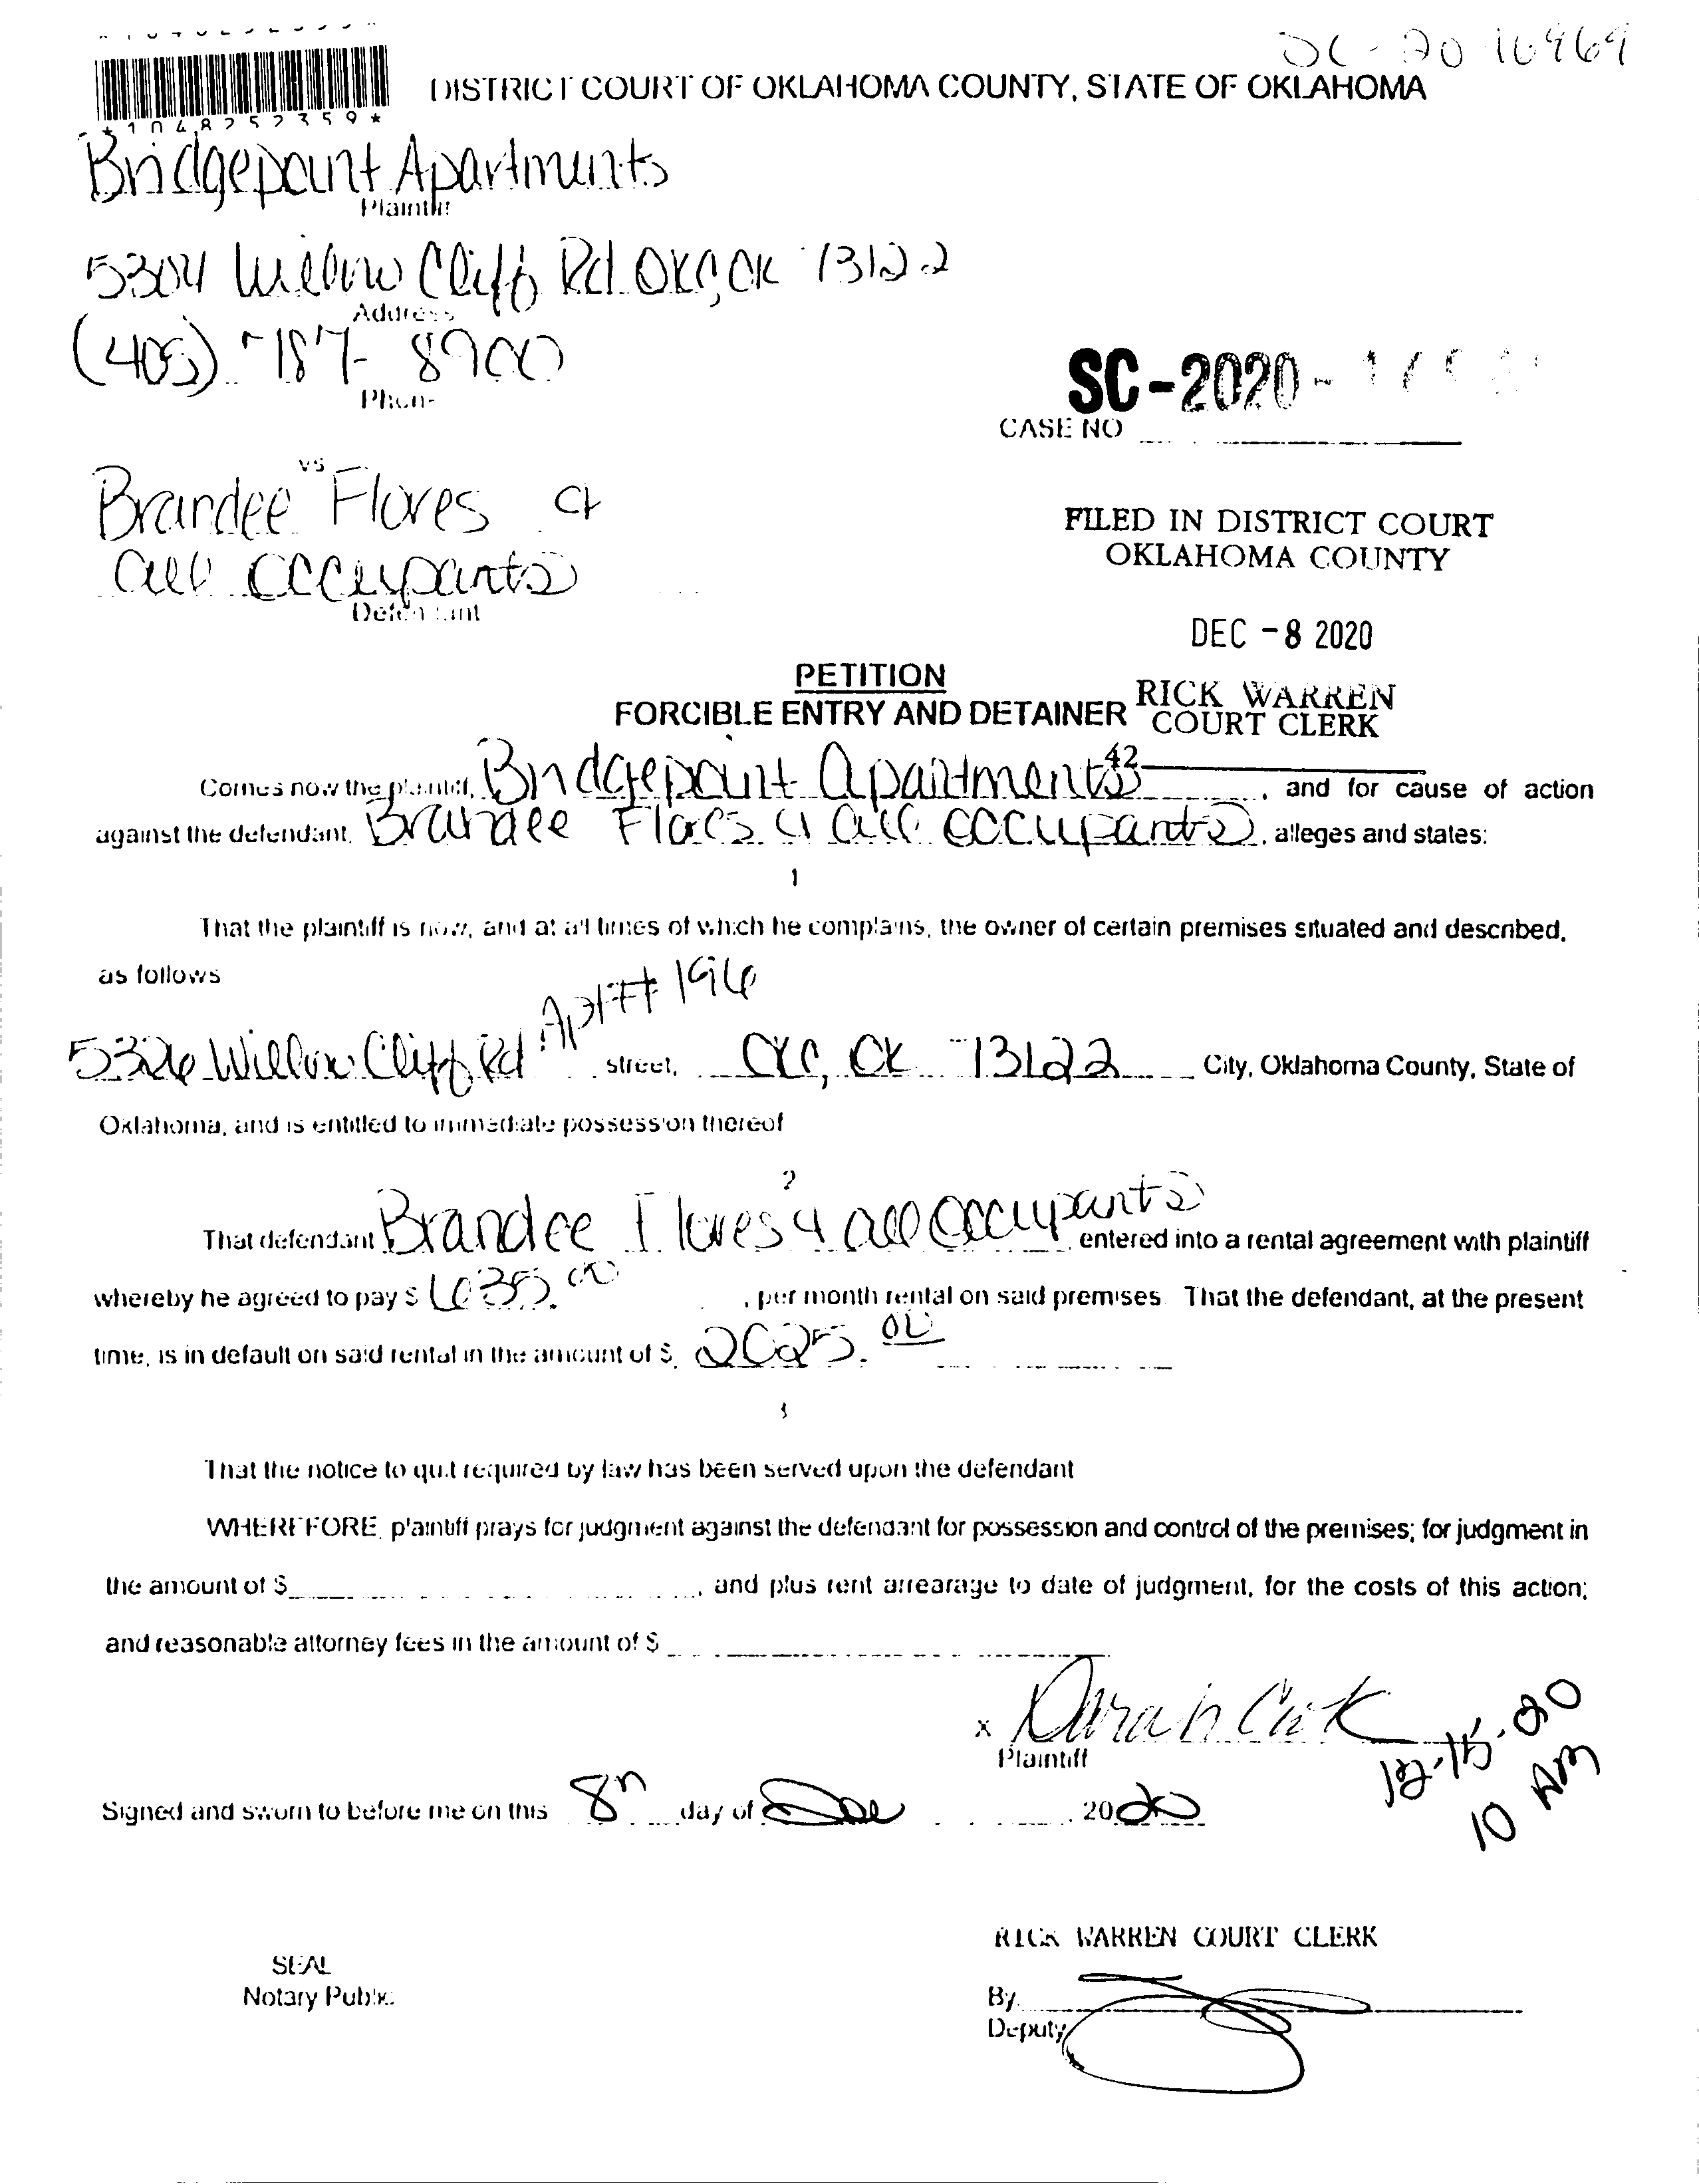 SC-20-16969
*1048252359*
DISTRICT COURT OF OKLAHOMA COUNTY, STATE OF OKLAHOMA
Bridgepoint Apartments
Plaintiff
5304 Willow Cliff Rd. OKC, OK 73122
Address
(405) 787-8900
Phone
SC-2020-
CASE NO
vs
Brandee Flores &
all occupants
Defendant
FILED IN DISTRICT COURT
OKLAHOMA COUNTY
DEC -8 2020
RICK WARREN
COURT CLERK
42
PETITION
FORCIBLE ENTRY AND DETAINER
Comes now the plaintiff, Bridgepoint Apartments, and for cause of action
against the defendant, Brandee Flores & all occupants, alleges and states:
1
That the plaintiff is now, and at all times of which he complains, the owner of certain premises situated and described,
as follows
5326 Willow Cliff Rd Apt # 196 street, OKC, OK 73122 City, Oklahoma County, State of
Oklahoma, and is entitled to immediate possession thereof
2
That defendant Brandee Flores & all occupants entered into a rental agreement with plaintiff
whereby he agreed to pay $ 635.00, per month rental on said premises. That the defendant, at the present
time, is in default on said rental in the amount of $ 2025.00
3
That the notice to quit required by law has been served upon the defendant
WHEREFORE, plaintiff prays for judgment against the defendant for possession and control of the premises; for judgment in
the amount of $, and plus rent arrearage to date of judgment, for the costs of this action;
and reasonable attorney fees in the amount of $
x
Plaintiff
12-15-20
10 AM
Signed and sworn to before me on this 8th day of Dec, 2020
RICK WARREN COURT CLERK
SEAL
Notary Public
By
Deputy